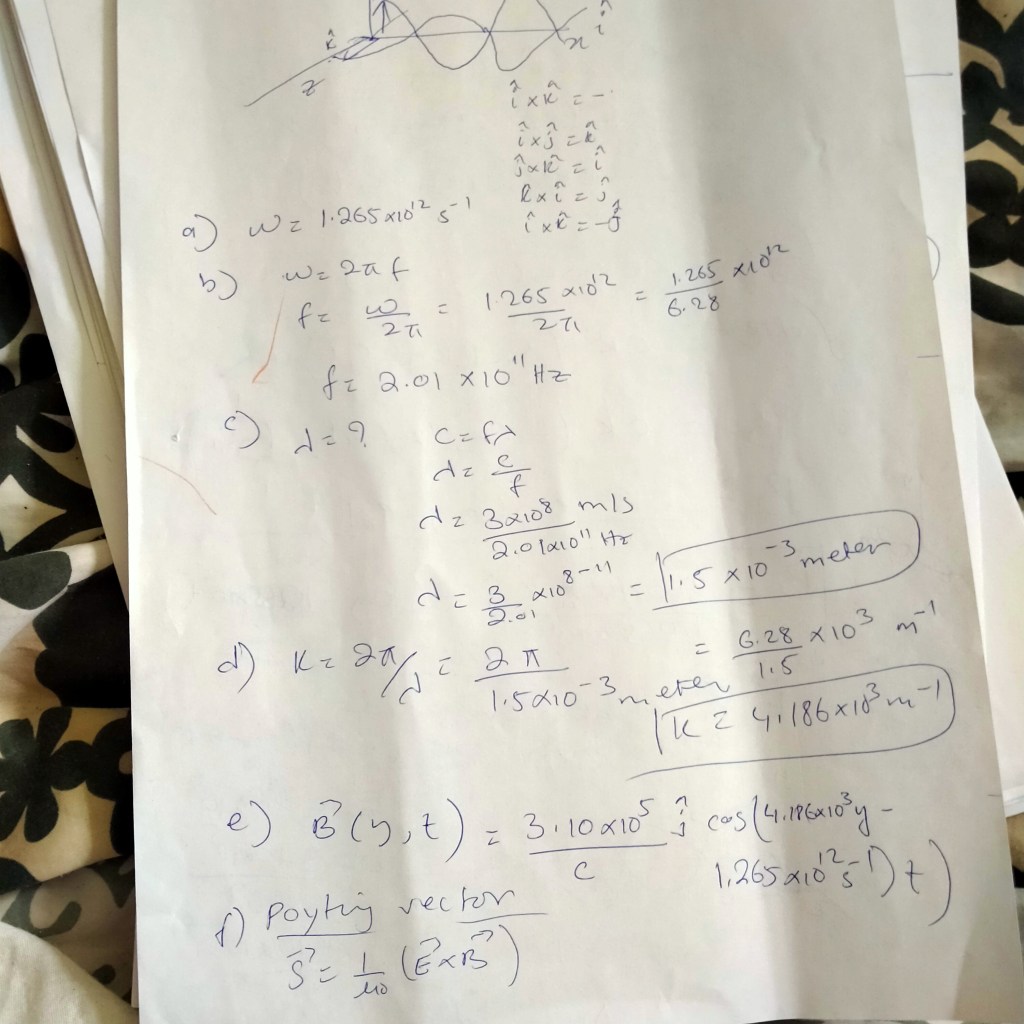 k̂
z
x
î
î x k̂ = -
î x ĵ = k̂
ĵ x k̂ = î
k x î = ĵ
î x k̂ = -ĵ
a) ω = 1.265 x 10¹² s⁻¹
b) ω = 2π f
f = ω/2π = 1.265 x10¹²/2π = 1.265/6.28 x10¹²
f = 2.01 x 10¹¹ Hz
c) λ = ? c = fλ
λ = c/f
λ = 3x10⁸ m/s / 2.01x10¹¹ Hz
λ = 3/2.01 x10⁸⁻¹¹ = 1.5 x 10⁻³ meter
d) K = 2π/λ = 2π / 1.5x10⁻³ meter = 6.28/1.5 x 10³ m⁻¹
K = 4.186x10³ m⁻¹
e) B⃗ (y, t) = 3.10x10⁵/c ĵ cos(4.186x10³y -
1.265x10¹² s⁻¹) t)
f) Poyting vector
S⃗ = 1/μ₀ (E⃗ x B⃗)